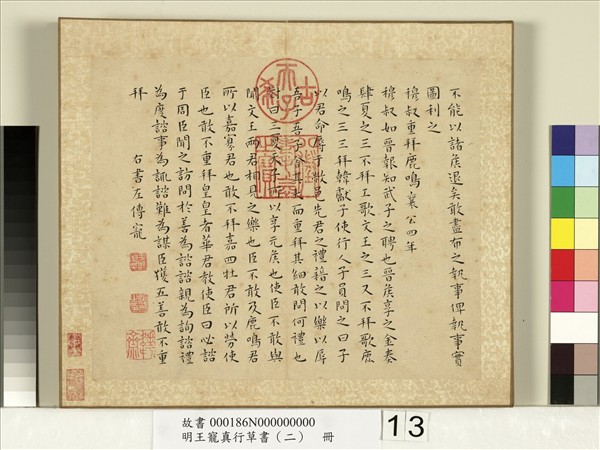 不能以諸矦退矣敢盡布之執事俾執事實
圖利之
穆叔重拜鹿鳴襄公四年
穆叔如晉報知武子之聘也晉矦享之金奏
肆夏之三不拜工歌文王之三又不拜歌鹿
鳴之三三拜韓獻子使行人子員問之曰子
以君命辱于敝邑先君之禮藉之以樂以辱
吾子吾子舍其大而重拜其細敢問何禮也
對曰三夏天子所以享元矦也使臣不敢與
聞文王兩君相見之樂也臣不敢及鹿鳴君
所以嘉寡君也敢不拜嘉四牡君所以勞使
臣也敢不重拜皇皇者華君教使臣曰必諮
于周臣聞之訪問於善為諮諮親為詢諮禮
為度諮事為諏諮難為謀臣獲五善敢不重
拜
右書左傳 寵
故書 000186N000000000
明王寵真行草書（二） 冊
13